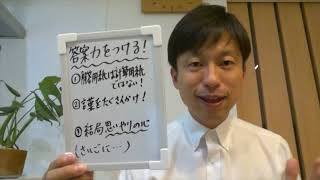 答案力をつける!
①解答用紙は計算用紙
ではない!
②言葉をたくさんかけ!
③結局思いやりの心
(さいごに…)